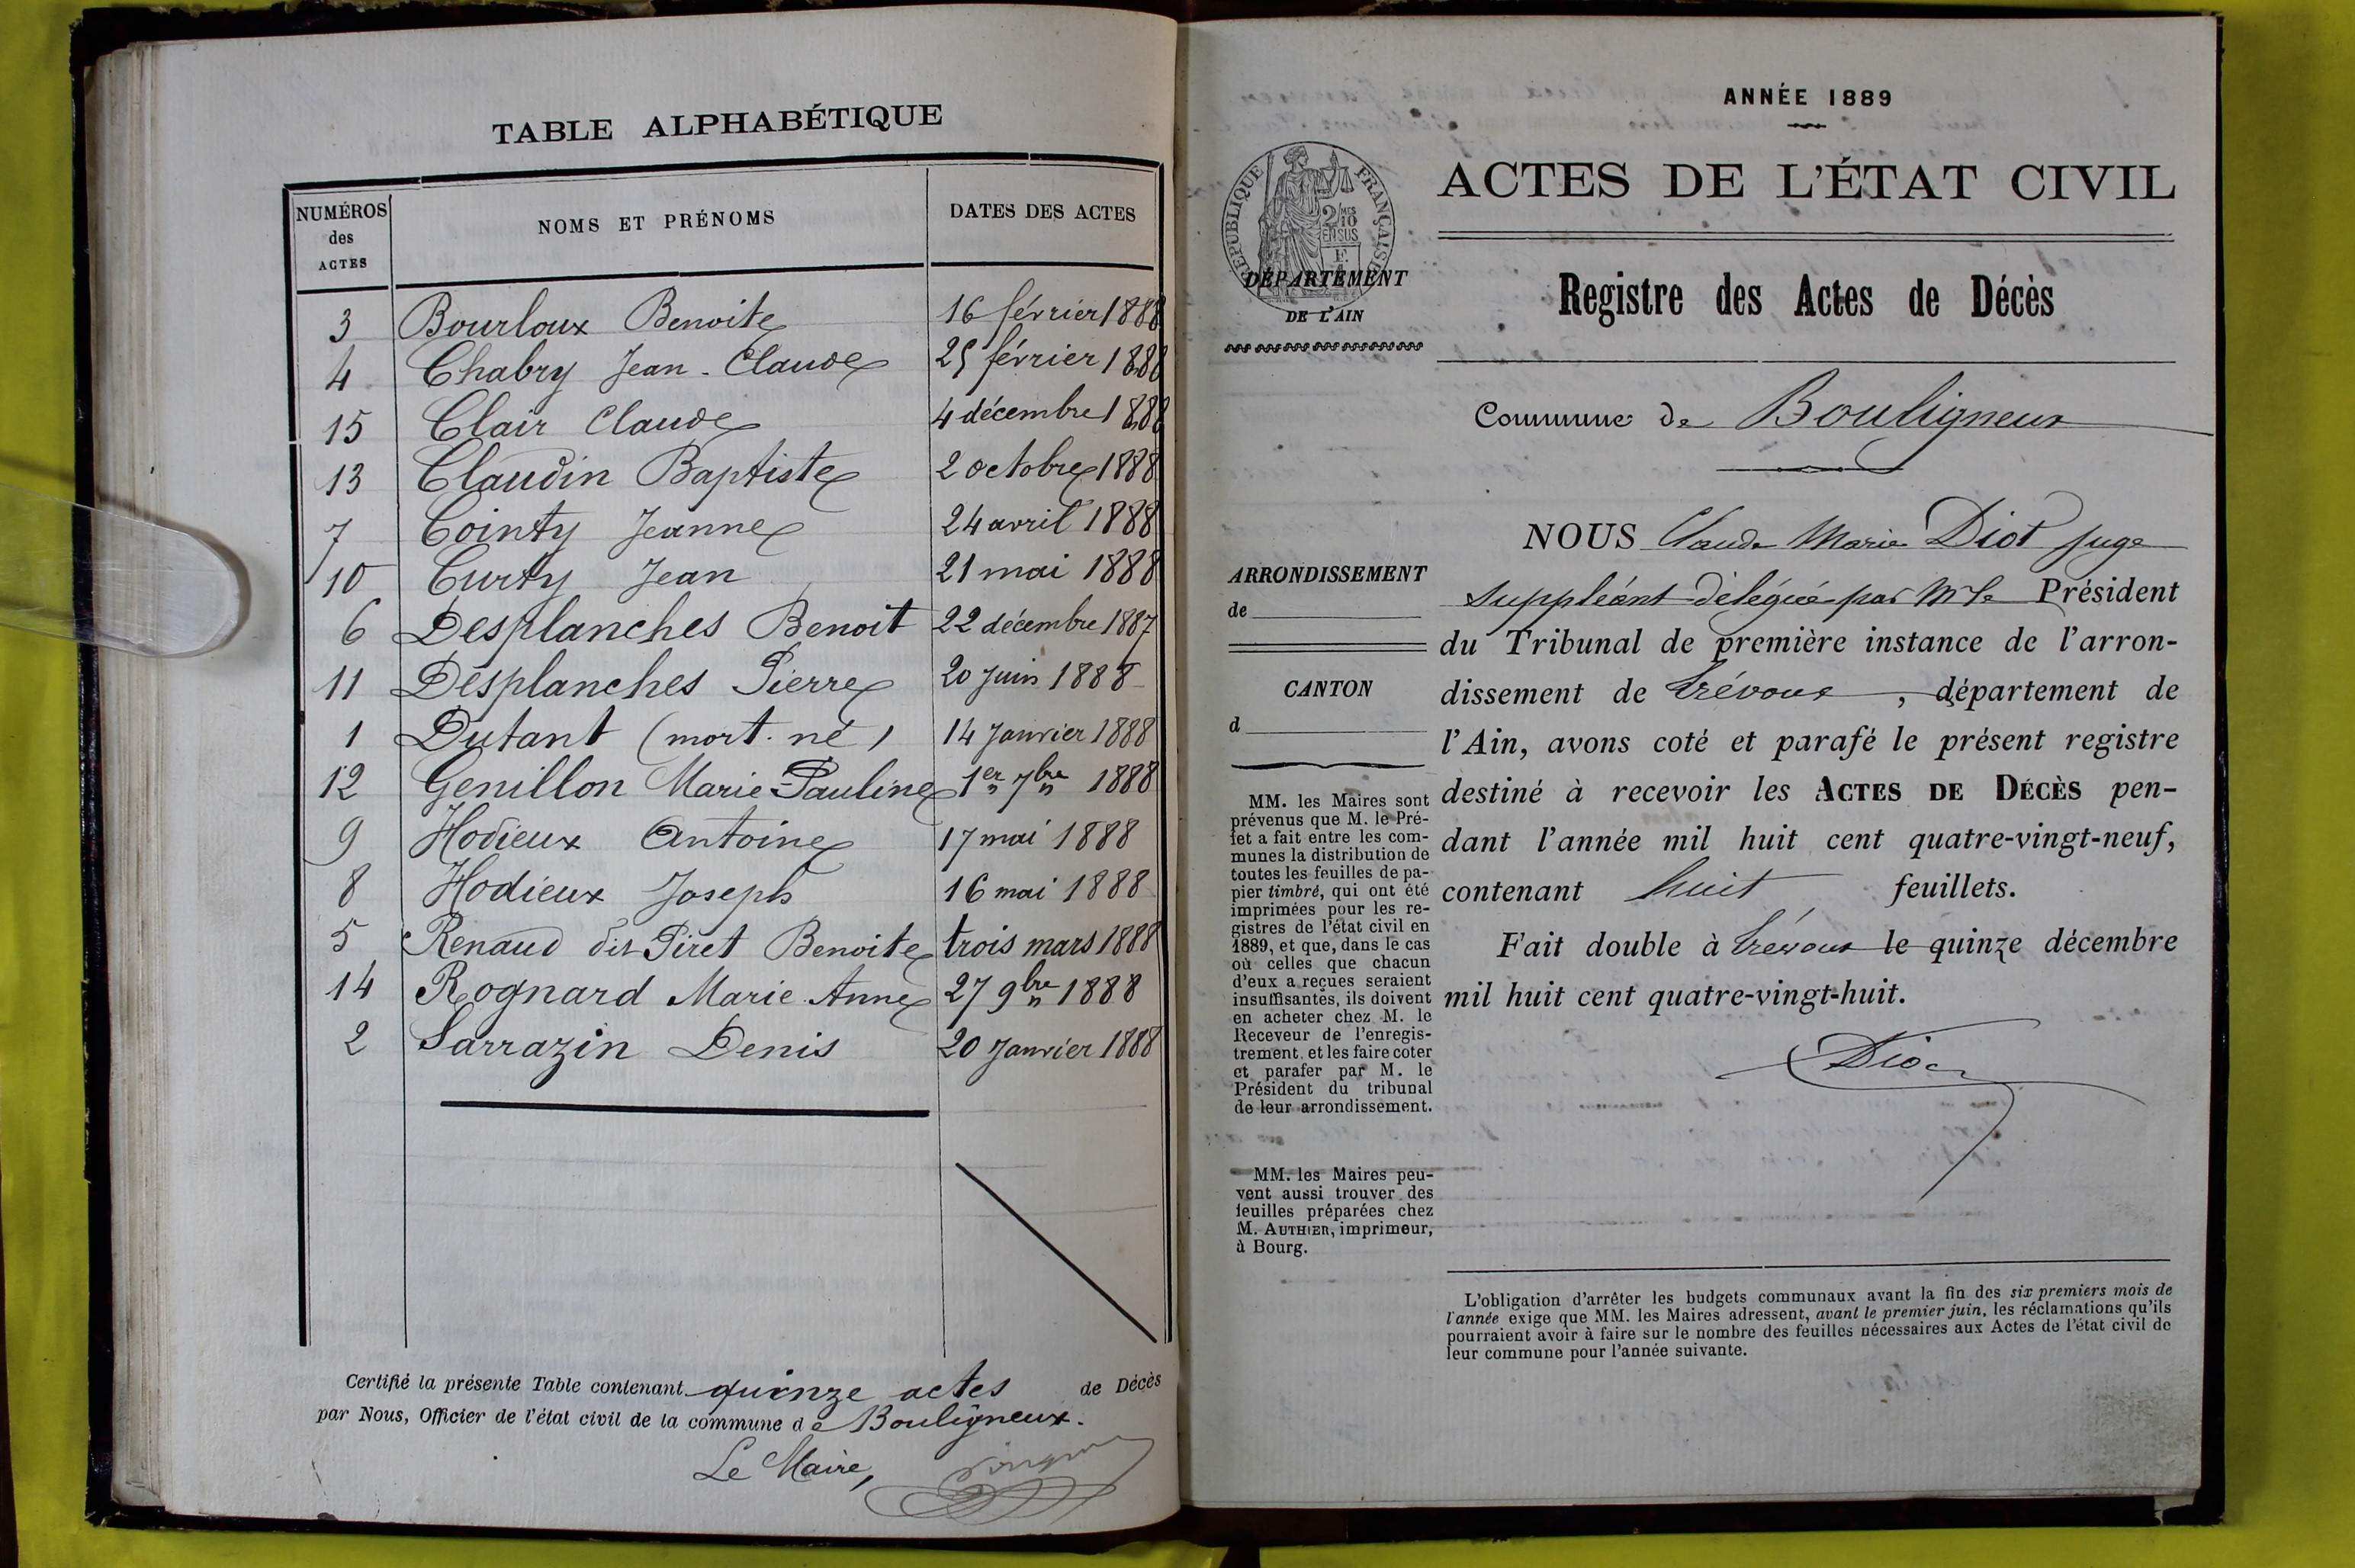 TABLE ALPHABÉTIQUE
NUMÉROS des ACTES NOMS ET PRÉNOMS DATES DES ACTES
3 Bourloux Benoite 16 février 1888
4 Chabry Jean-Claude 25 février 1888
15 Clair Claude 4 décembre 1888
13 Claudin Baptiste 2 octobre 1888
7 Cointy Jeanne 24 avril 1888
10 Curty Jean 21 mai 1888
6 Desplanches Benoit 22 décembre 1887
11 Desplanches Pierre 20 Juin 1888
1 Dutant (mort-né) 14 Janvier 1888
12 Genillon Marie-Pauline 1er 7bre 1888
9 Hodieux Antoine 17 mai 1888
8 Hodieux Joseph 16 mai 1888
5 Renaud dit Piret Benoite trois mars 1888
14 Rognard Marie-Anne 27 9bre 1888
2 Sarrazin Denis 20 Janvier 1888
Certifié la présente Table contenant quinze actes de Décès
par Nous, Officier de l'état civil de la commune de Bouligneux.
Le Maire,
ANNÉE 1889
ACTES DE L'ÉTAT CIVIL
RÉPUBLIQUE FRANÇAISE
2/10 MES
EN SUS
DÉPARTEMENT
DE L'AIN
Registre des Actes de Décès
Commune de Bouligneux
ARRONDISSEMENT
de
CANTON
d
MM. les Maires sont
prévenus que M. le Pré-
fet a fait entre les com-
munes la distribution de
toutes les feuilles de pa-
pier timbré, qui ont été
imprimées pour les re-
gistres de l'état civil en
1889, et que, dans le cas
où celles que chacun
d'eux a reçues seraient
insuffisantes, ils doivent
en acheter chez M. le
Receveur de l'enregis-
trement, et les faire coter
et parafer par M. le
Président du tribunal
de leur arrondissement.
MM. les Maires peu-
vent aussi trouver des
feuilles préparées chez
M. AUTHIER, imprimeur,
à Bourg.
NOUS Claude Marie Diot Juge
Suppléant délégué par Mr le Président
du Tribunal de première instance de l'arron-
dissement de Trévoux, département de
l'Ain, avons coté et parafé le présent registre
destiné à recevoir les ACTES DE DÉCÈS pen-
dant l'année mil huit cent quatre-vingt-neuf,
contenant huit feuillets.
Fait double à Trévoux le quinze décembre
mil huit cent quatre-vingt-huit.
Diot
L'obligation d'arrêter les budgets communaux avant la fin des six premiers mois de
l'année exige que MM. les Maires adressent, avant le premier juin, les réclamations qu'ils
pourraient avoir à faire sur le nombre des feuilles nécessaires aux Actes de l'état civil de
leur commune pour l'année suivante.